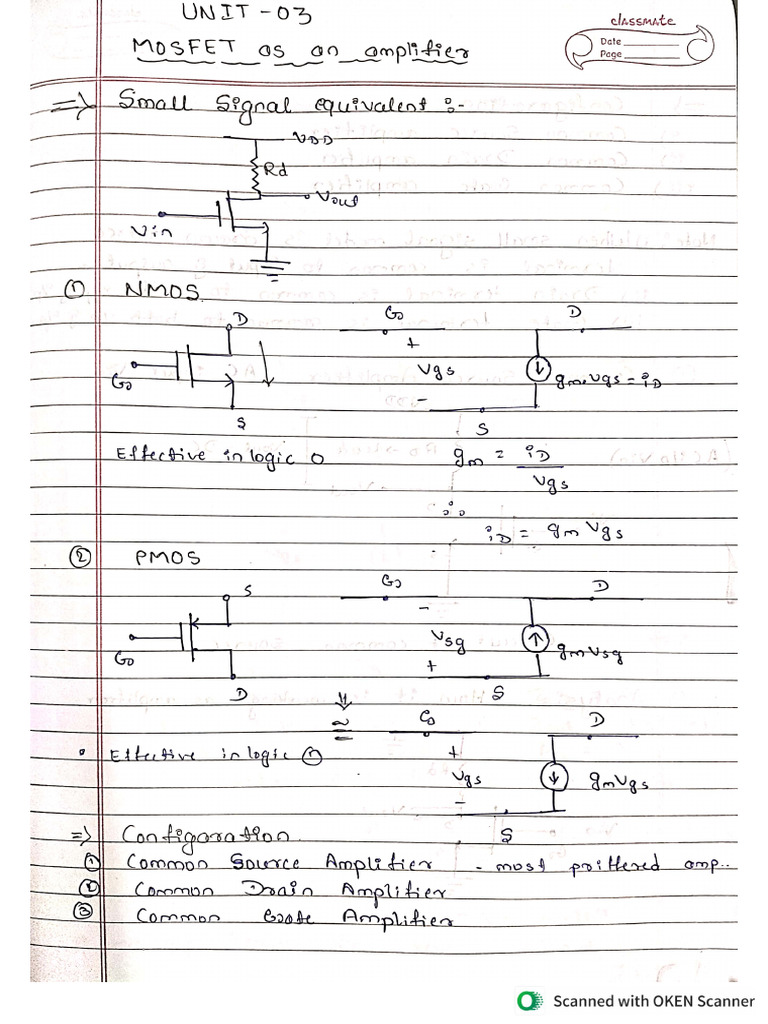 UNIT-03
classmate
Date
Page
MOSFET as an amplifier
=> Small Signal equivalent :-
VDD
Rd
Vout
Vin
① NMOS
D
G
S
G
D
+
Vgs
-
gm.Vgs = iD
S
Effective in logic 0
gm = iD / Vgs
∴
iD = gm Vgs
② PMOS
S
G
D
G
D
-
Vsg
+
gmVsg
S
≅
G
D
+
Vgs
-
gmVgs
S
• Effective in logic ①
=> Configaration
① Common Source Amplifier - most priffered amp..
② Common Drain Amplifier
③ Common Gate Amplifier
Scanned with OKEN Scanner